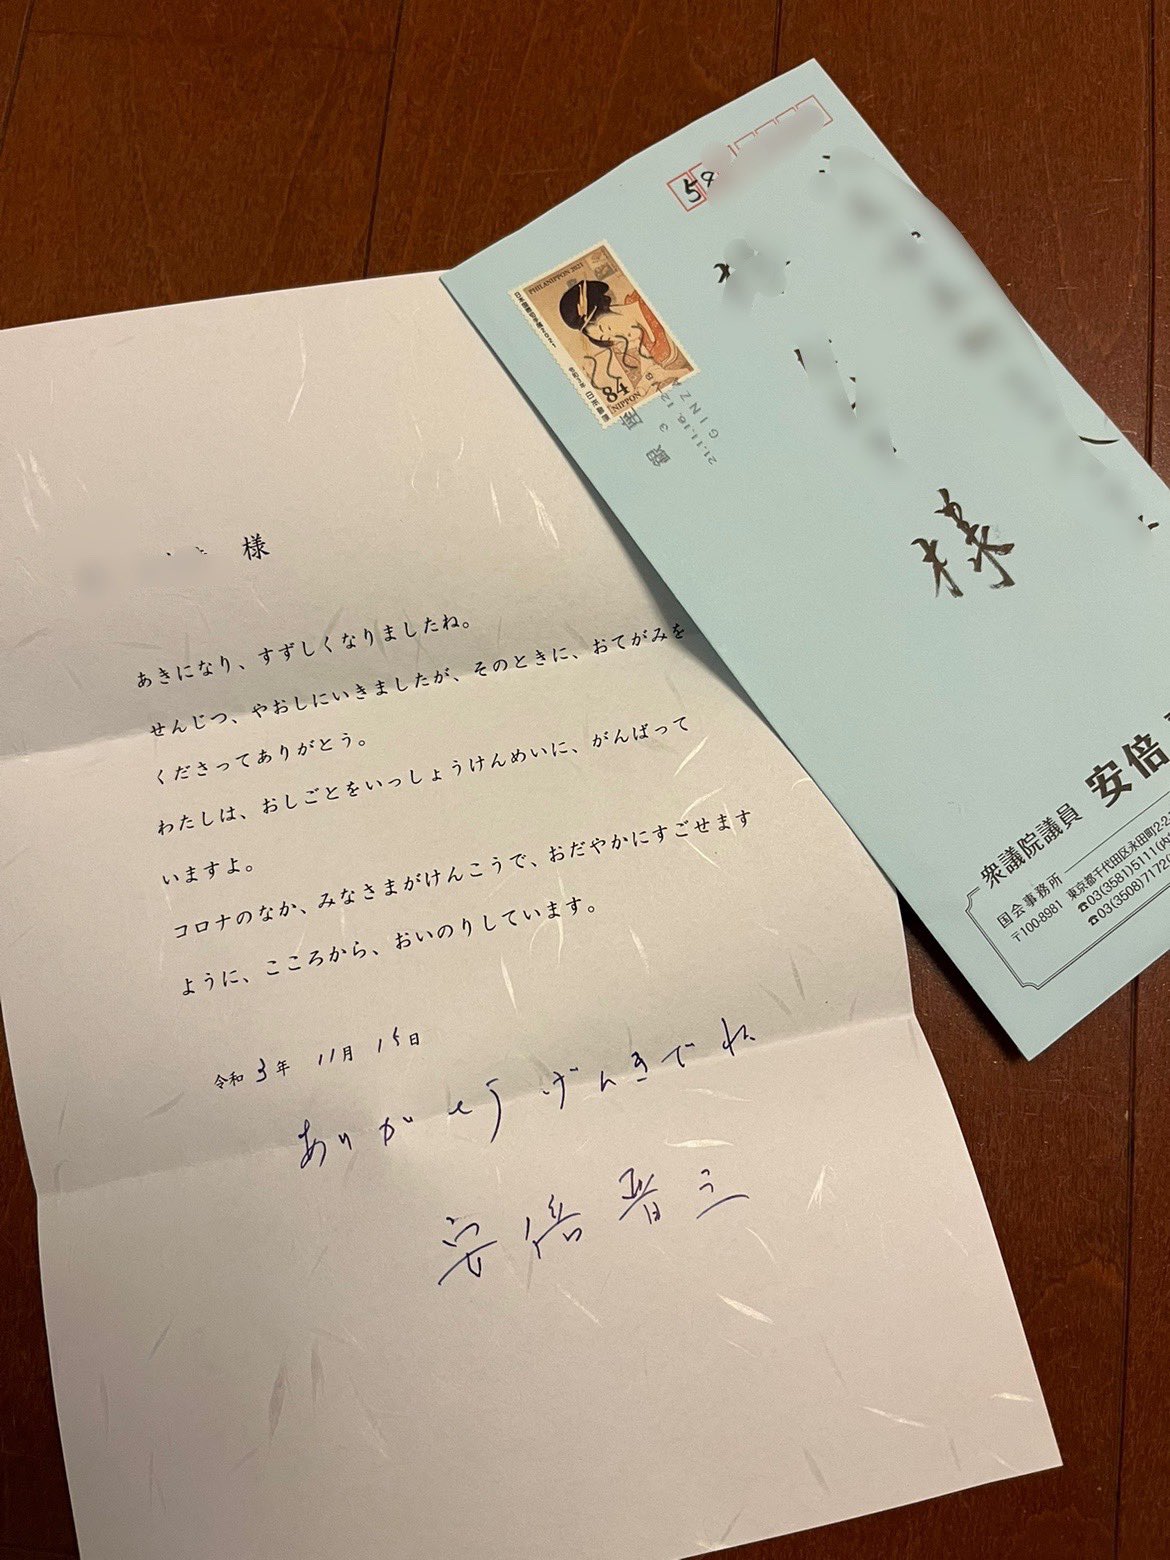 様
あきになり、すずしくなりましたね。
せんじつ、やおしにいきましたが、そのときに、おてがみを
くださってありがとう。
わたしは、おしごとをいっしょうけんめいに、がんばって
いますよ。
コロナのなか、みなさまがけんこうで、おだやかにすごせます
ように、こころから、おいのりしています。
令和3年 11月 15日
ありがとう げんきでね
安倍晋三
59
PHILANIPPON 2021
日本国際切手展2021
84
NIPPON
日本郵便
銀座
21.11.16. 12
GINZA
様
衆議院議員 安倍
国会事務所
〒100-8981 東京都千代田区永田町2-2-
☎03(3581)5111(内
☎03(3508)7172